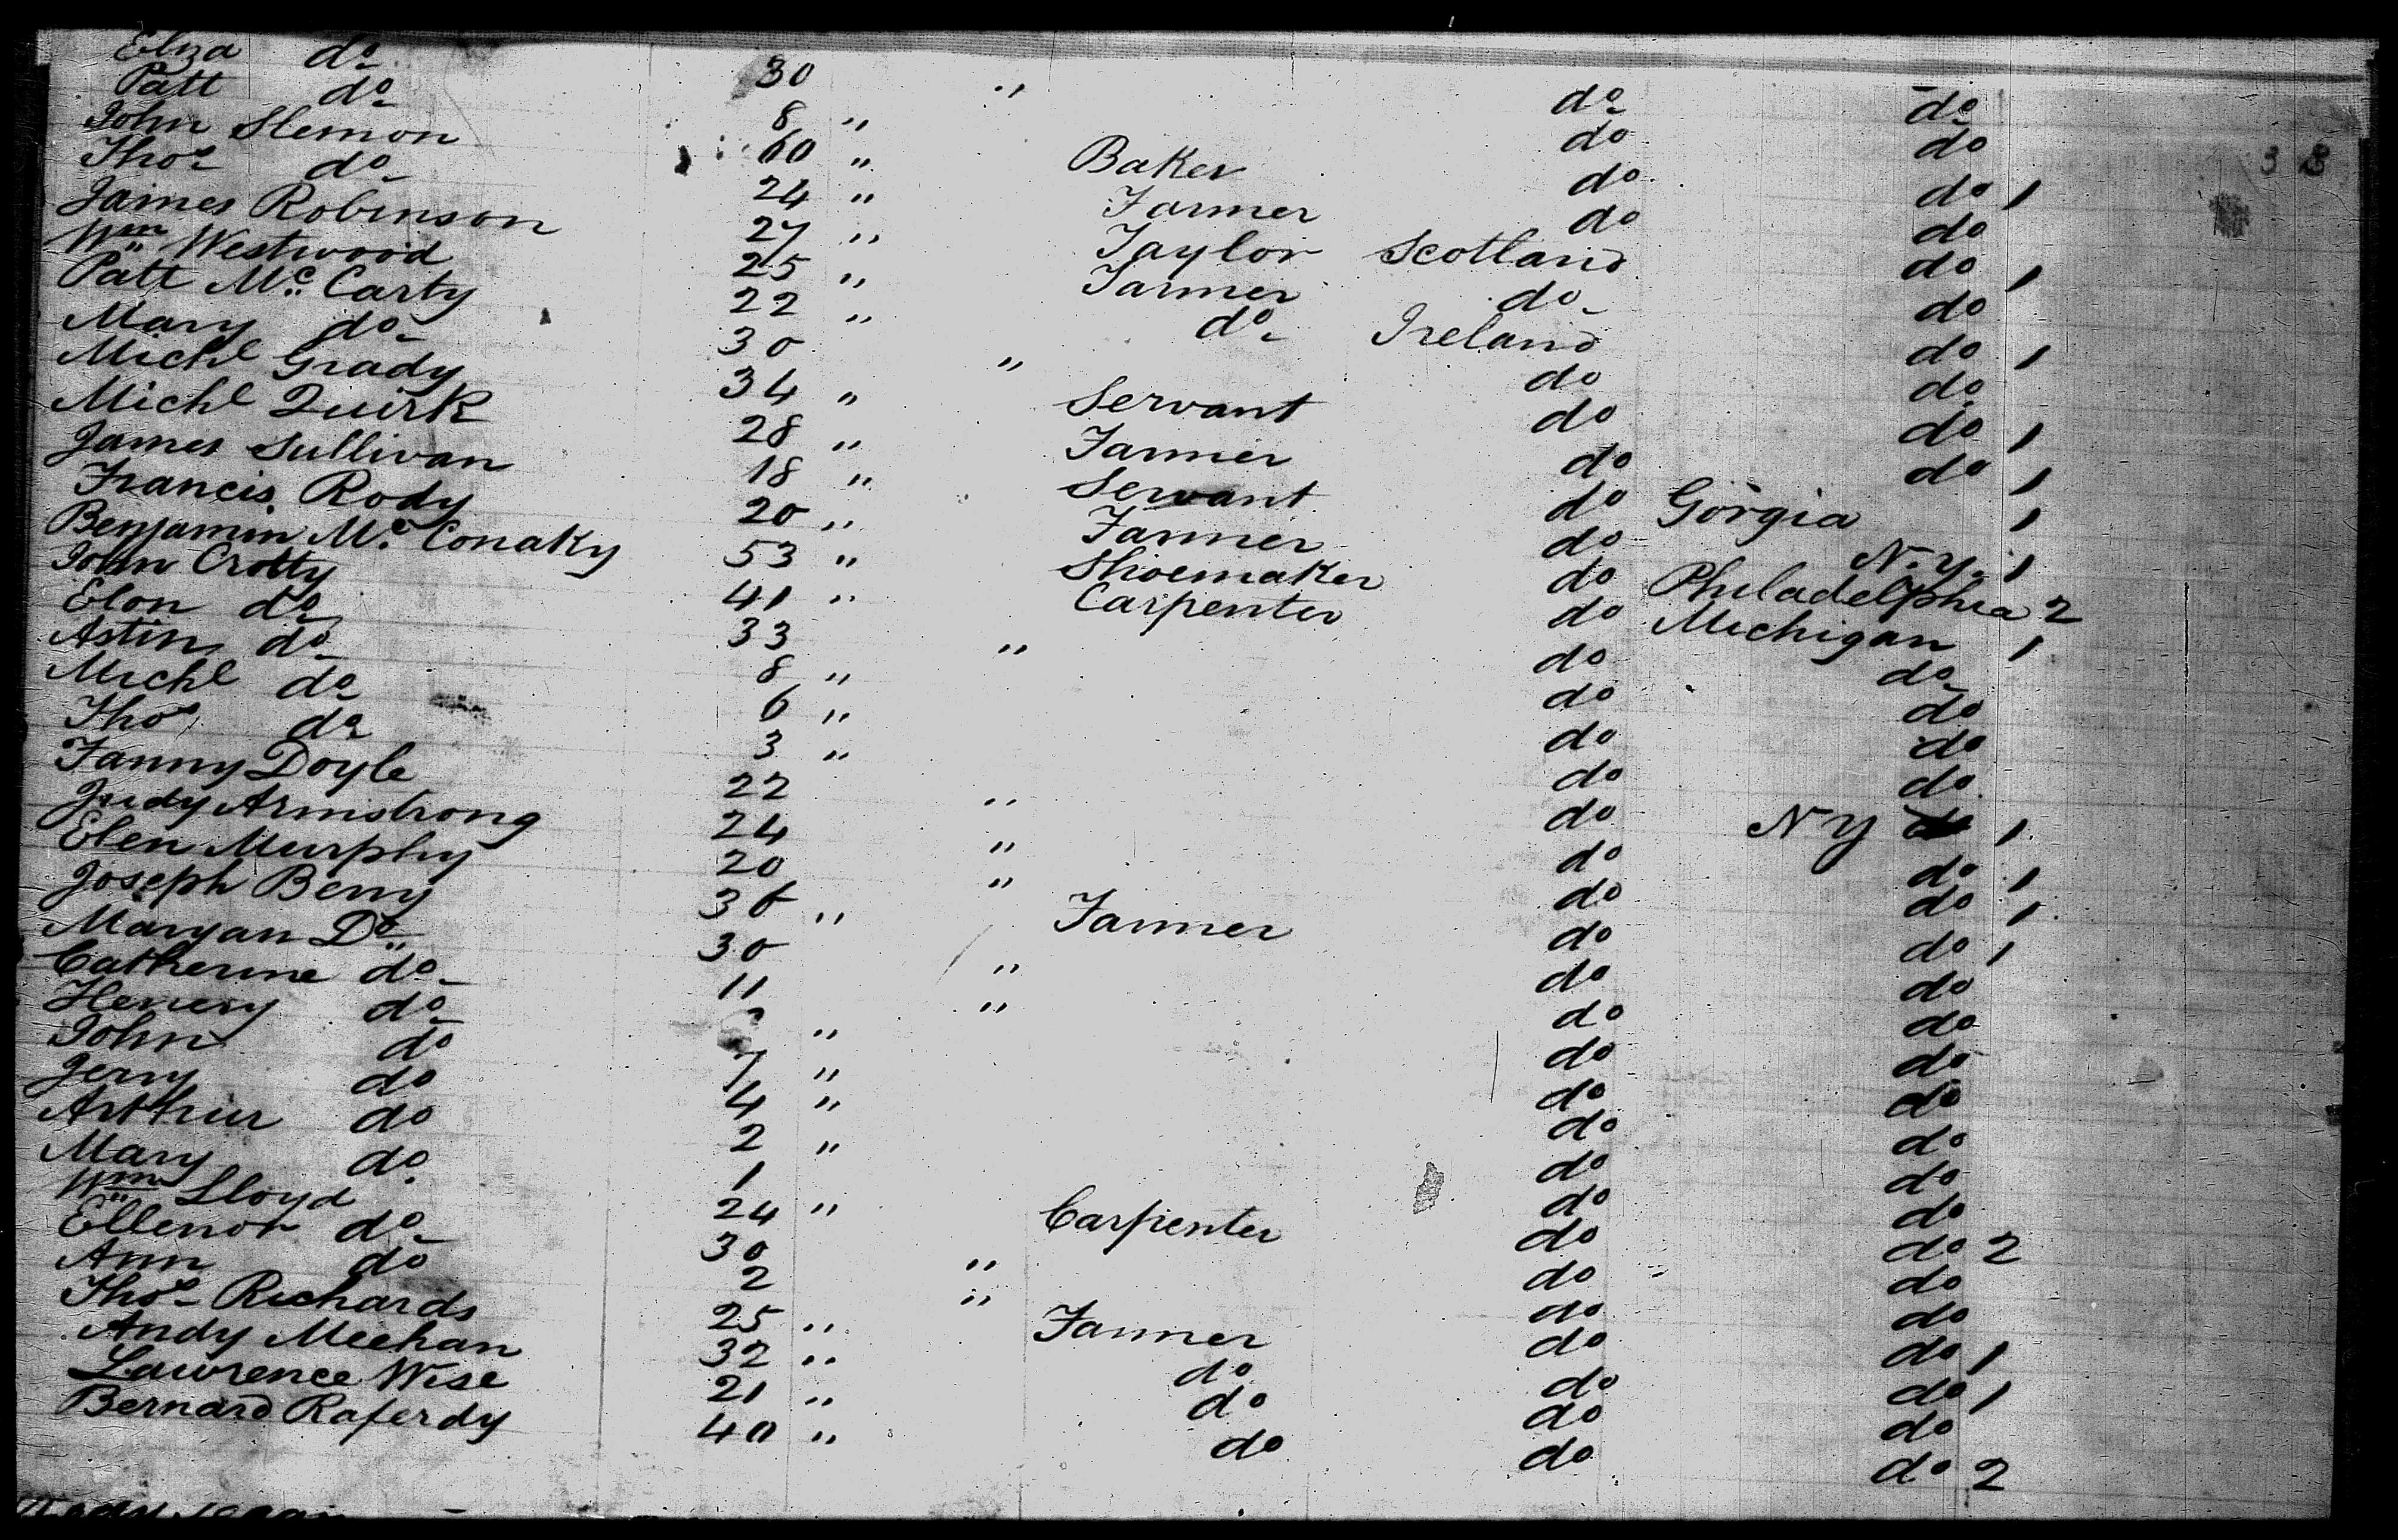 Eliza do 30 " do do
Patt do 8 " do do
John Slemon 60 " Baker do do 1
Thos do 24 " Farmer do do
James Robinson 27 " Taylor Scotland do 1
Wm Westwood 25 " Farmer do do
Patt Mc Carty 22 " do Ireland do 1
Mary do 30 " do do
Michl Grady 34 " Servant do do 1
Michl Quirk 28 " Farmer do do 1
James Sullivan 18 " Servant do Gorgia 1
Francis Rody 20 " Farmer do N.Y. 1
Benjamin Mc Conaky 53 " Shoemaker do Philadelphia 2
John Crotty 41 " Carpenter do Michigan 1
Elon do 33 " do do
Astin do 8 " do do
Michl do 6 " do do
Thos do 3 " do do
Fanny Doyle 22 " do N Y 1
Judy Armstrong 24 " do do 1
Elen Murphy 20 " do do 1
Joseph Berry 36 " Farmer do do 1
Maryan Do 30 " do do
Catherine do 11 " do do
Henery do " do do
John do 7 " do do
Jerry do 4 " do do
Arthur do 2 " do do
Mary do 1 do do
Wm Lloyd 24 " Carpenter do do 2
Ellenor do 30 " do do
Ann do 2 " do do
Thos Richards 25 " Farmer do do 1
Andy Meehan 32 " do do do 1
Lawrence Wise 21 " do do do
Bernard Raferdy 40 " do do do 2